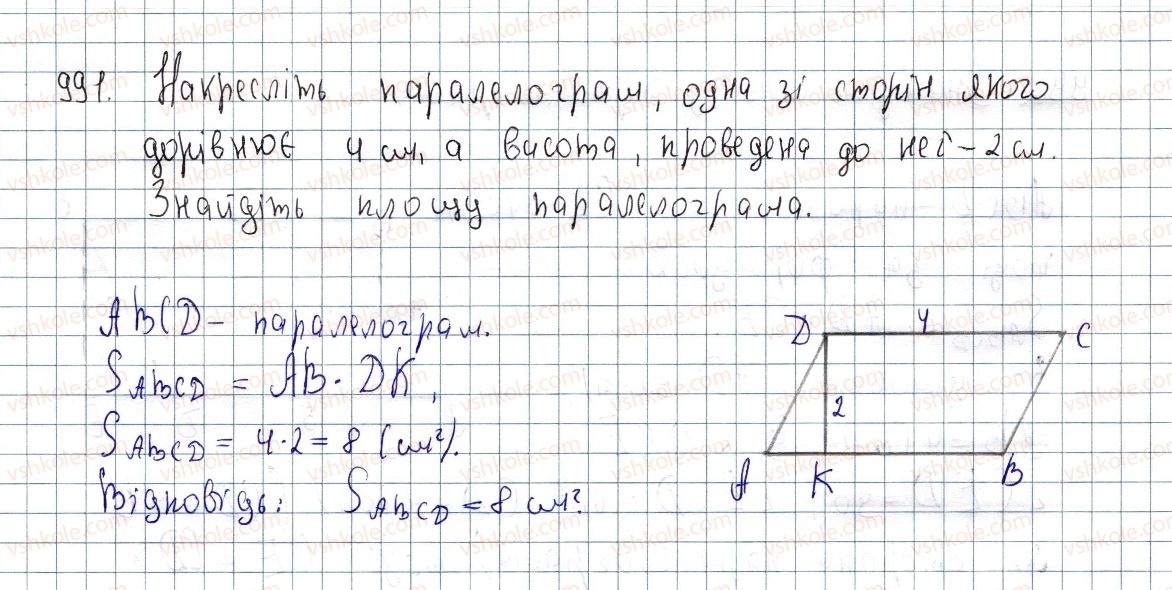 991. Накресліть паралелограм, одна зі сторін якого
дорівнює 4 см, а висота, проведена до неї – 2 см.
Знайдіть площу паралелограма.
ABCD – паралелограм.
S ABCD = AB · DK,
S ABCD = 4 · 2 = 8 (см²).
Відповідь: S ABCD = 8 см².
D 4 C
2
A K B
vshkole.com